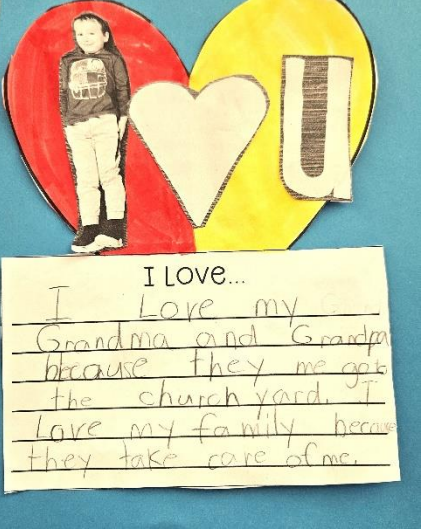 U
I LOVE...
I Love my
Grandma and Grandpa
because they me go to
the church yard. I
Love my family because
they take care of me.